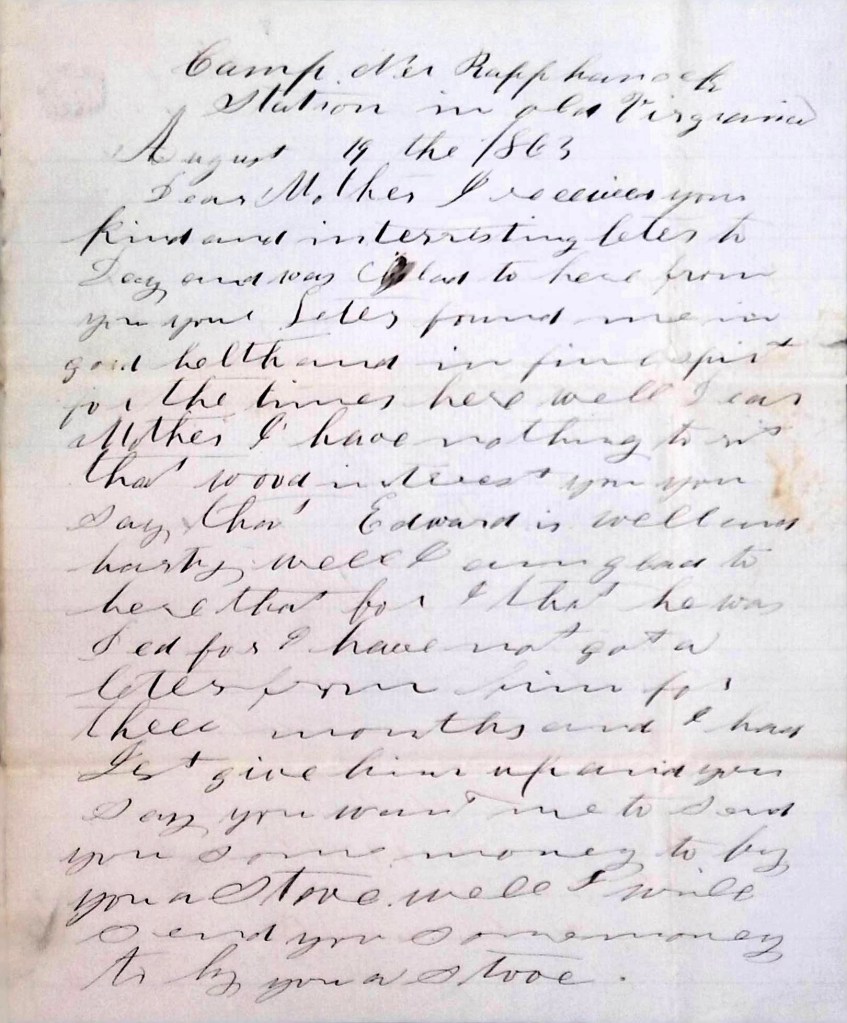 Camp Ner Rapphanock
Station in old Virginia
August 19 the 1863
Dear Mother I received your
kind and interristing leter to
Day and was Glad to here from
you your Leter found me in
good helth and in fine spirt
for the times here well Dear
Mother I have nothing to rit
that wood interest you you
say that Edward is well and
harty well I am glad to
here that for I that he was
Ded for I have not got a
leter from him for
three months and I had
Jest give him up and you
say you want me to send
you some money to by
you a Stove well I will
send you some money
to by you a stove.